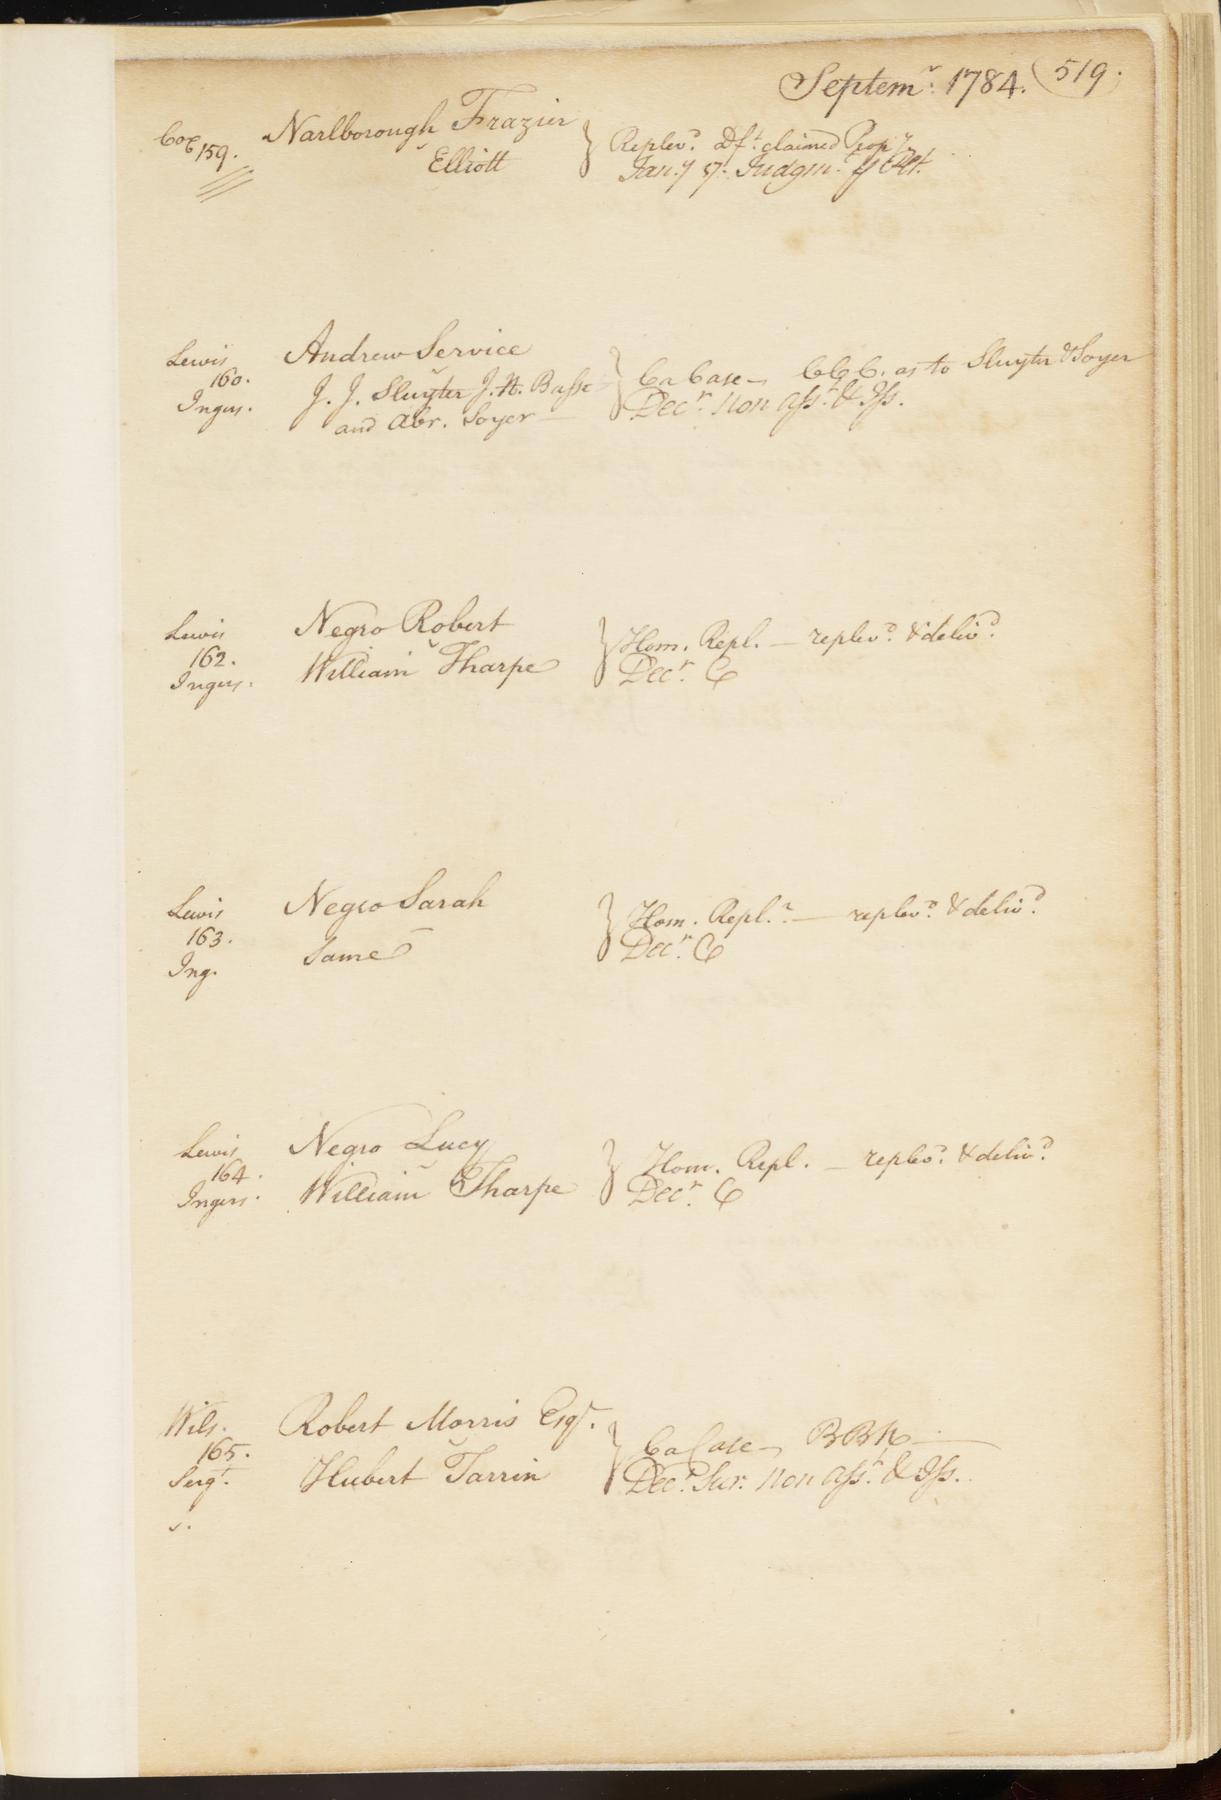 Septemr. 1784. 519.
Cox 159. Narlborough Frazier } Replevd. Dft. claimed Propy
Elliott Jany 87. Judgmt. pr Plt.
Lewis Andrew Service
160. J. J. Sluyter J. H. Basse } Ca Case CCC. as to Sluyter & Soyer
Ingers. and Abr. Soyer Decr. Non Asst. & Iss.
Lewis Negro Robert } Hom. Repl. — replevd. & delivd.
162.
Ingers. William Tharpe Decr. C
Lewis Negro Sarah } Hom. Repl. — replevd. & delivd.
163. Decr. C
Ing. Same
Lewis Negro Lucy } Hom. Repl. — replevd. & delivd.
164.
Ingers. William Tharpe Decr. C
Wils. Robert Morris Esqr. } Ca Case BBR
165.
Sergt. Hubert Tarrin Decr. Sur. Non Asst. & Iss.